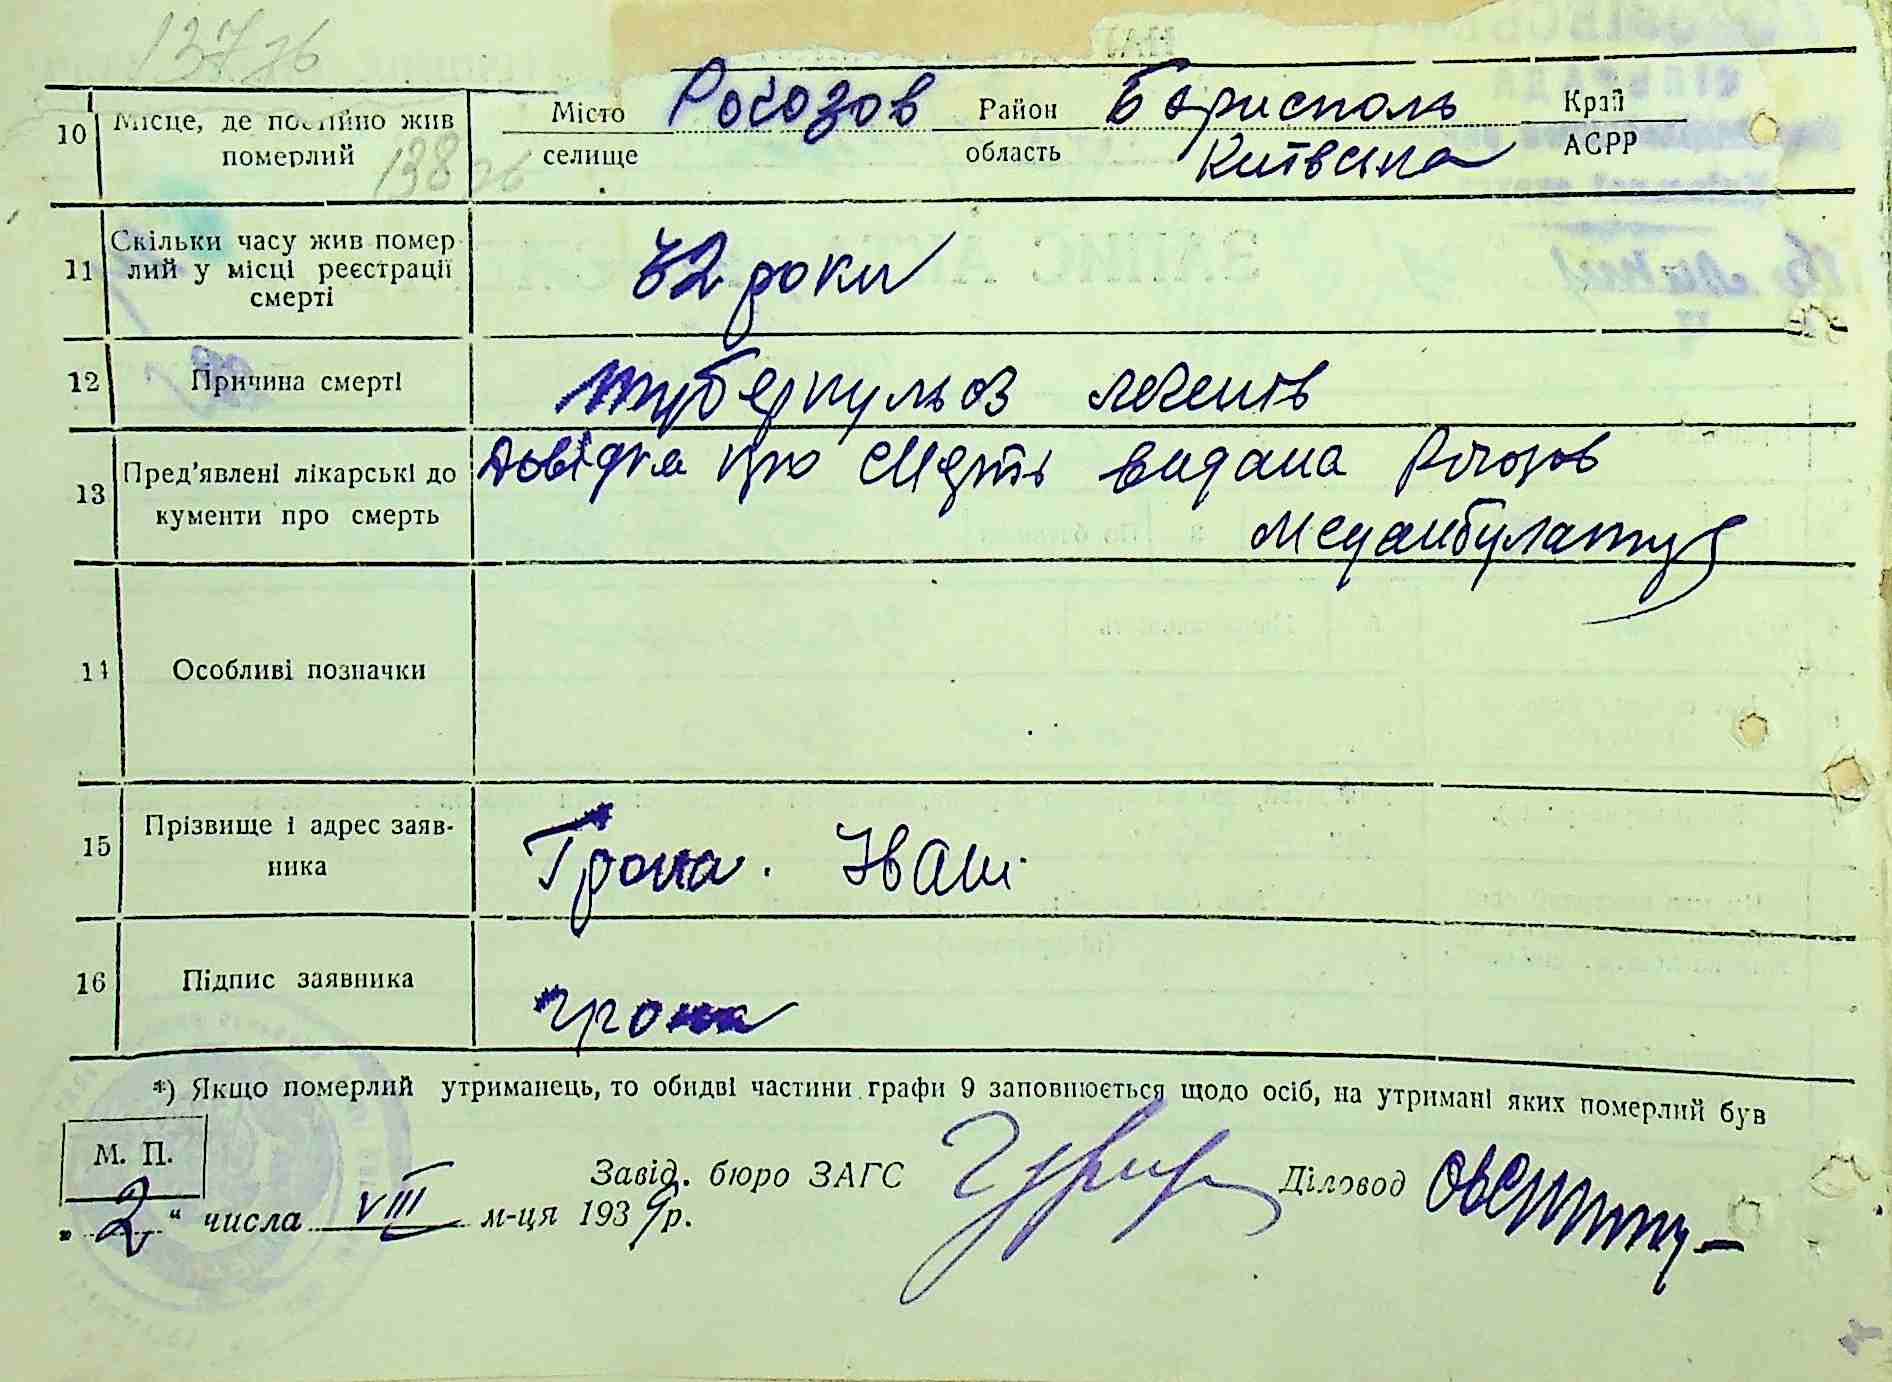 137зв
10 Місце, де постійно жив померлий 138зв
Місто Рогозов Район Бориспол Край
селище область Київська АСРР
11 Скільки часу жив помер
лий у місці реєстрації
смерті
32 роки
12 Причина смерті туберкульоз легенів
13 Пред'явлені лікарські до
кументи про смерть
Довідка про смерть видана Рогозов
Медамбулатор
14 Особливі позначки
15 Прізвище і адрес заяв-
ника
Грона. Іван
16 Підпис заявника грона
*) Якщо померлий утриманець, то обидві частини графи 9 заповнюється щодо осіб, на утримані яких померлий був
М. П.
Завід. бюро ЗАГС Діловод
„2“ числа VIII м-ця 1939р.